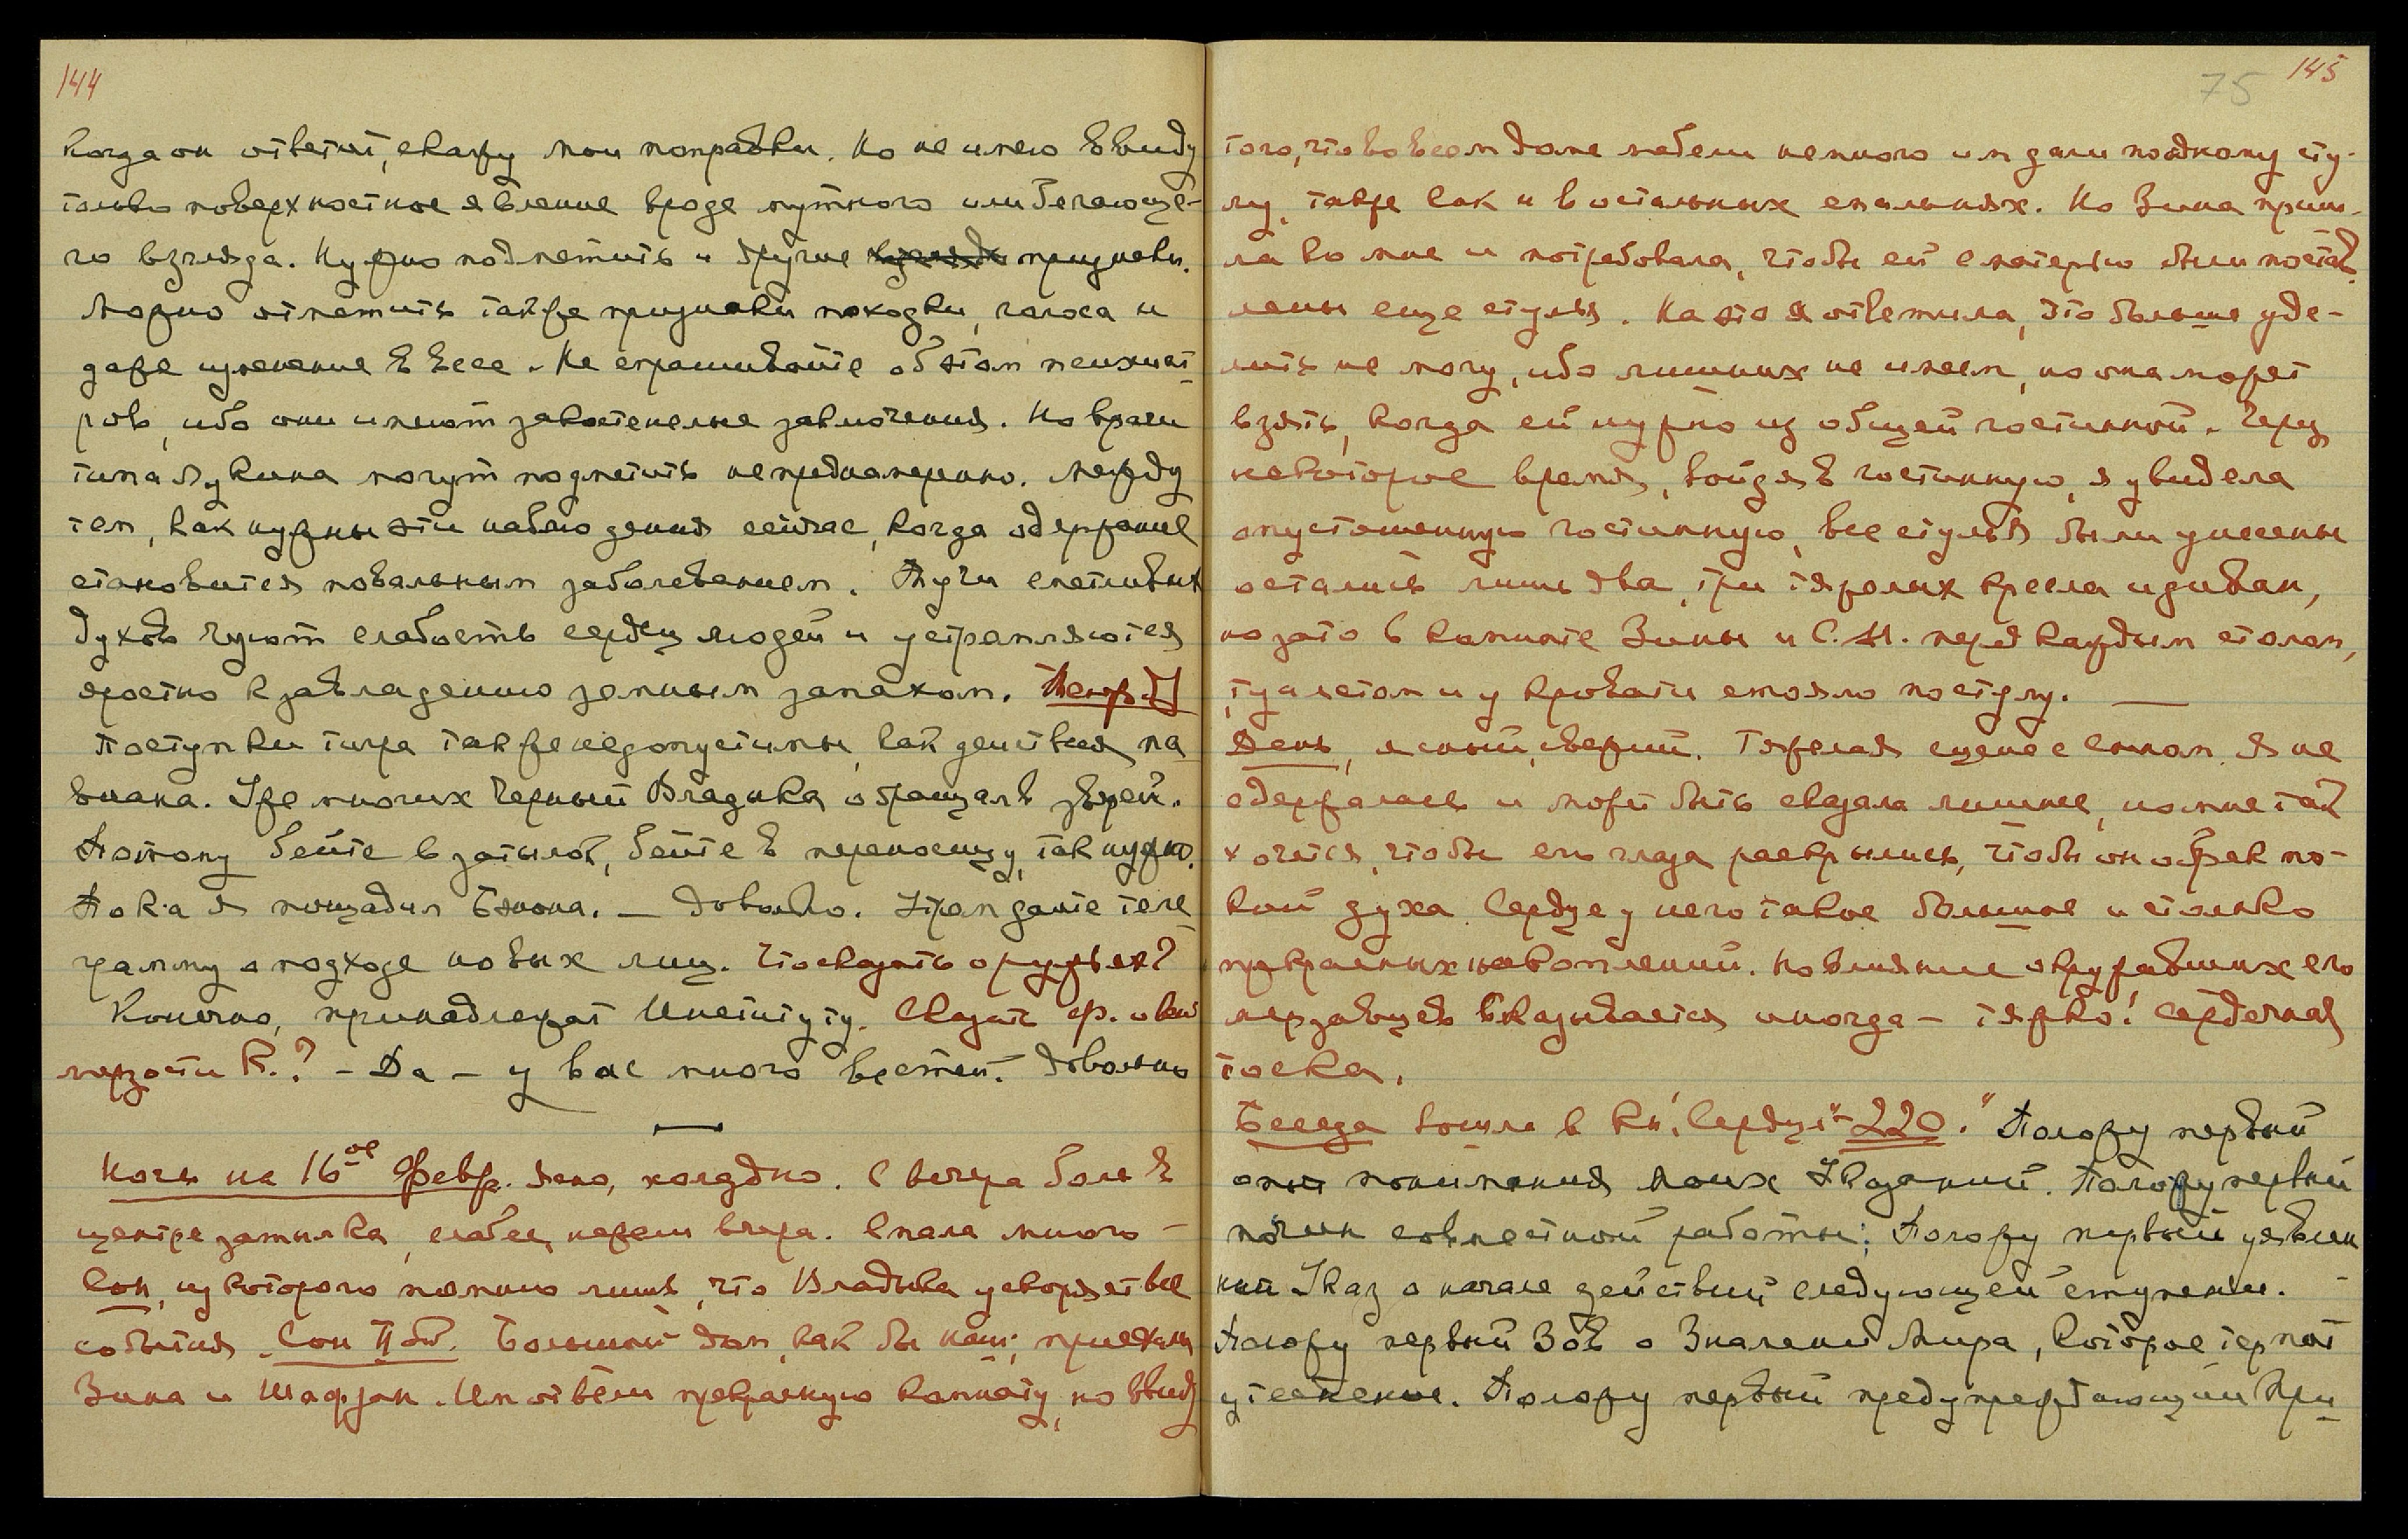 144
когда он ответит, скажу мои поправки. Но не имею ввиду
только поверхностное явление вроде мутного или бегающе-
го взгляда. Нужно подметить и другие признаки.
Можно отметить также признаки походки, голоса и
даже изменение в весе. Не спрашивайте об этом психиат-
ров, ибо они имеют закостенелые заключения. Но врачи
типа Лукина могут подметить непреднамеренно. Между
тем, как нужны эти наблюдения сейчас, когда одержание
становится повальным заболеванием. Тучи сметливых
духов чуют слабость сердец людей и устремляются
яростно к завладению земным запахом.
Поступки тигра также недопустимы, как действия па
виана. Уже многих Черный Владыка обращал в зверей.
Потому бейте в затылок, бейте в переносицу, так нужно.
Пока я пощадил Бэнона. — Довольно. Утром дайте теле
грамму о подходе новых лиц. Что сказать о друзьях?
Конечно, принадлежат Институту. Сказать Фр. о
мерзости К.? — Да — у вас много вестей. Довольно
Ночь на 16ое Февр. Ясно, холодно. С вечера боль в
центре затылка, слабее, нежели вчера. Спала много —
Сон, из которого помню лишь, что Владыка ускоряет все
события. Сон Большой дом, как бы наш; приехали
Зина и Шафран. Им отвели прекрасную комнату, но ввиду
75
145
того, что во всем доме мебели немного им дали по одному сту-
лу, также как и в остальных спальнях. Но Зина приш-
ла ко мне и потребовала, чтобы ей с матерью были постав
лены еще стулья. На это я ответила, что больше уде-
лить не могу, ибо лишних не имеем, но она может
взять, когда ей нужно из общей гостинной. Через
некоторое время, войдя в гостинную, я увидела
опустошенную гостинную, все стулья были унесены
остались лишь два, три тяжелых кресла и диван,
но зато в комнате Зины и С.М. перед каждым столом,
туалетом и у кровати стояло по стулу. —
День, ясный, свежий. Тяжелая сцена с сыном. Я не
сдержалась и может быть сказала лишнее, но мне так
хочется, чтобы его глаза раскрылись, чтобы он обрек по-
кой духа. Сердце у него такое большое и столько
прекрасных накоплений. Но влияние окружавших его
мерзавцев сказывается иногда — тяжко! Сердечная
тоска.
Беседа вошла в кн. "Сердце" — 220. "Положу первый
понимания Моих Указаний. Положу первый
почин совместной работы; Положу первый
ный Указ о начале действий следующей ступени. —
Положу первый Зов о Знамени Мира, которое терпит
утеснение. Положу первый предупреждающий При